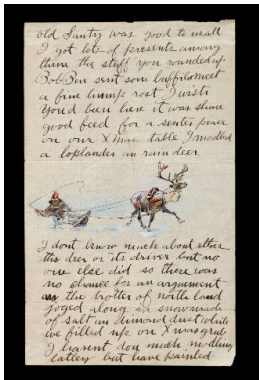 old Santy was good to us all
I got lots of presents among
them the stuff you rounded up
Bob Ben sent som buffilo meet
a fine hump rost I wish
you'd been here it was shure
good feed for a senter piece
on our Xmas table I modled
a loplander an rain deer
I dont know much about ether
the deer or its driver but no
one else did so there was
no chance for an argument
as the trotter of north land
joged along in snow made
of salt an dimond dust while
we filled up on Xmas grub
I havent don much modling
latley but have painted